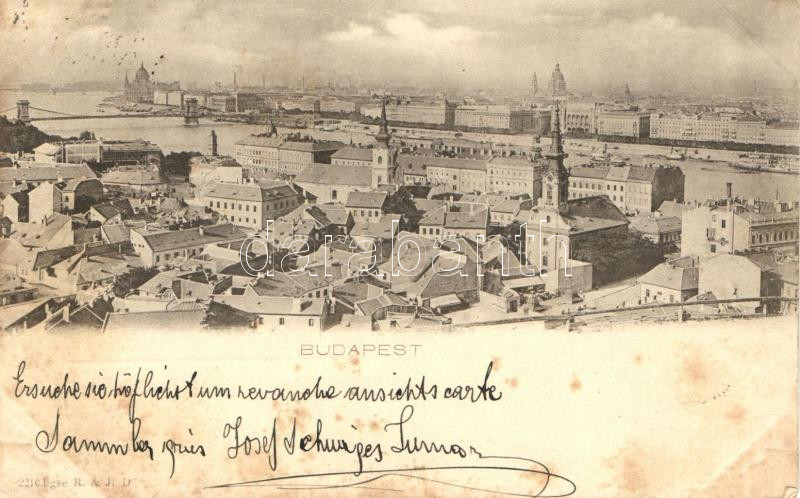 darabanth
BUDAPEST
Ersuche sie höflichst um revanche ansichtscarte
Sammler grüs Josef Schwiges
2216 bgse R. & J. D